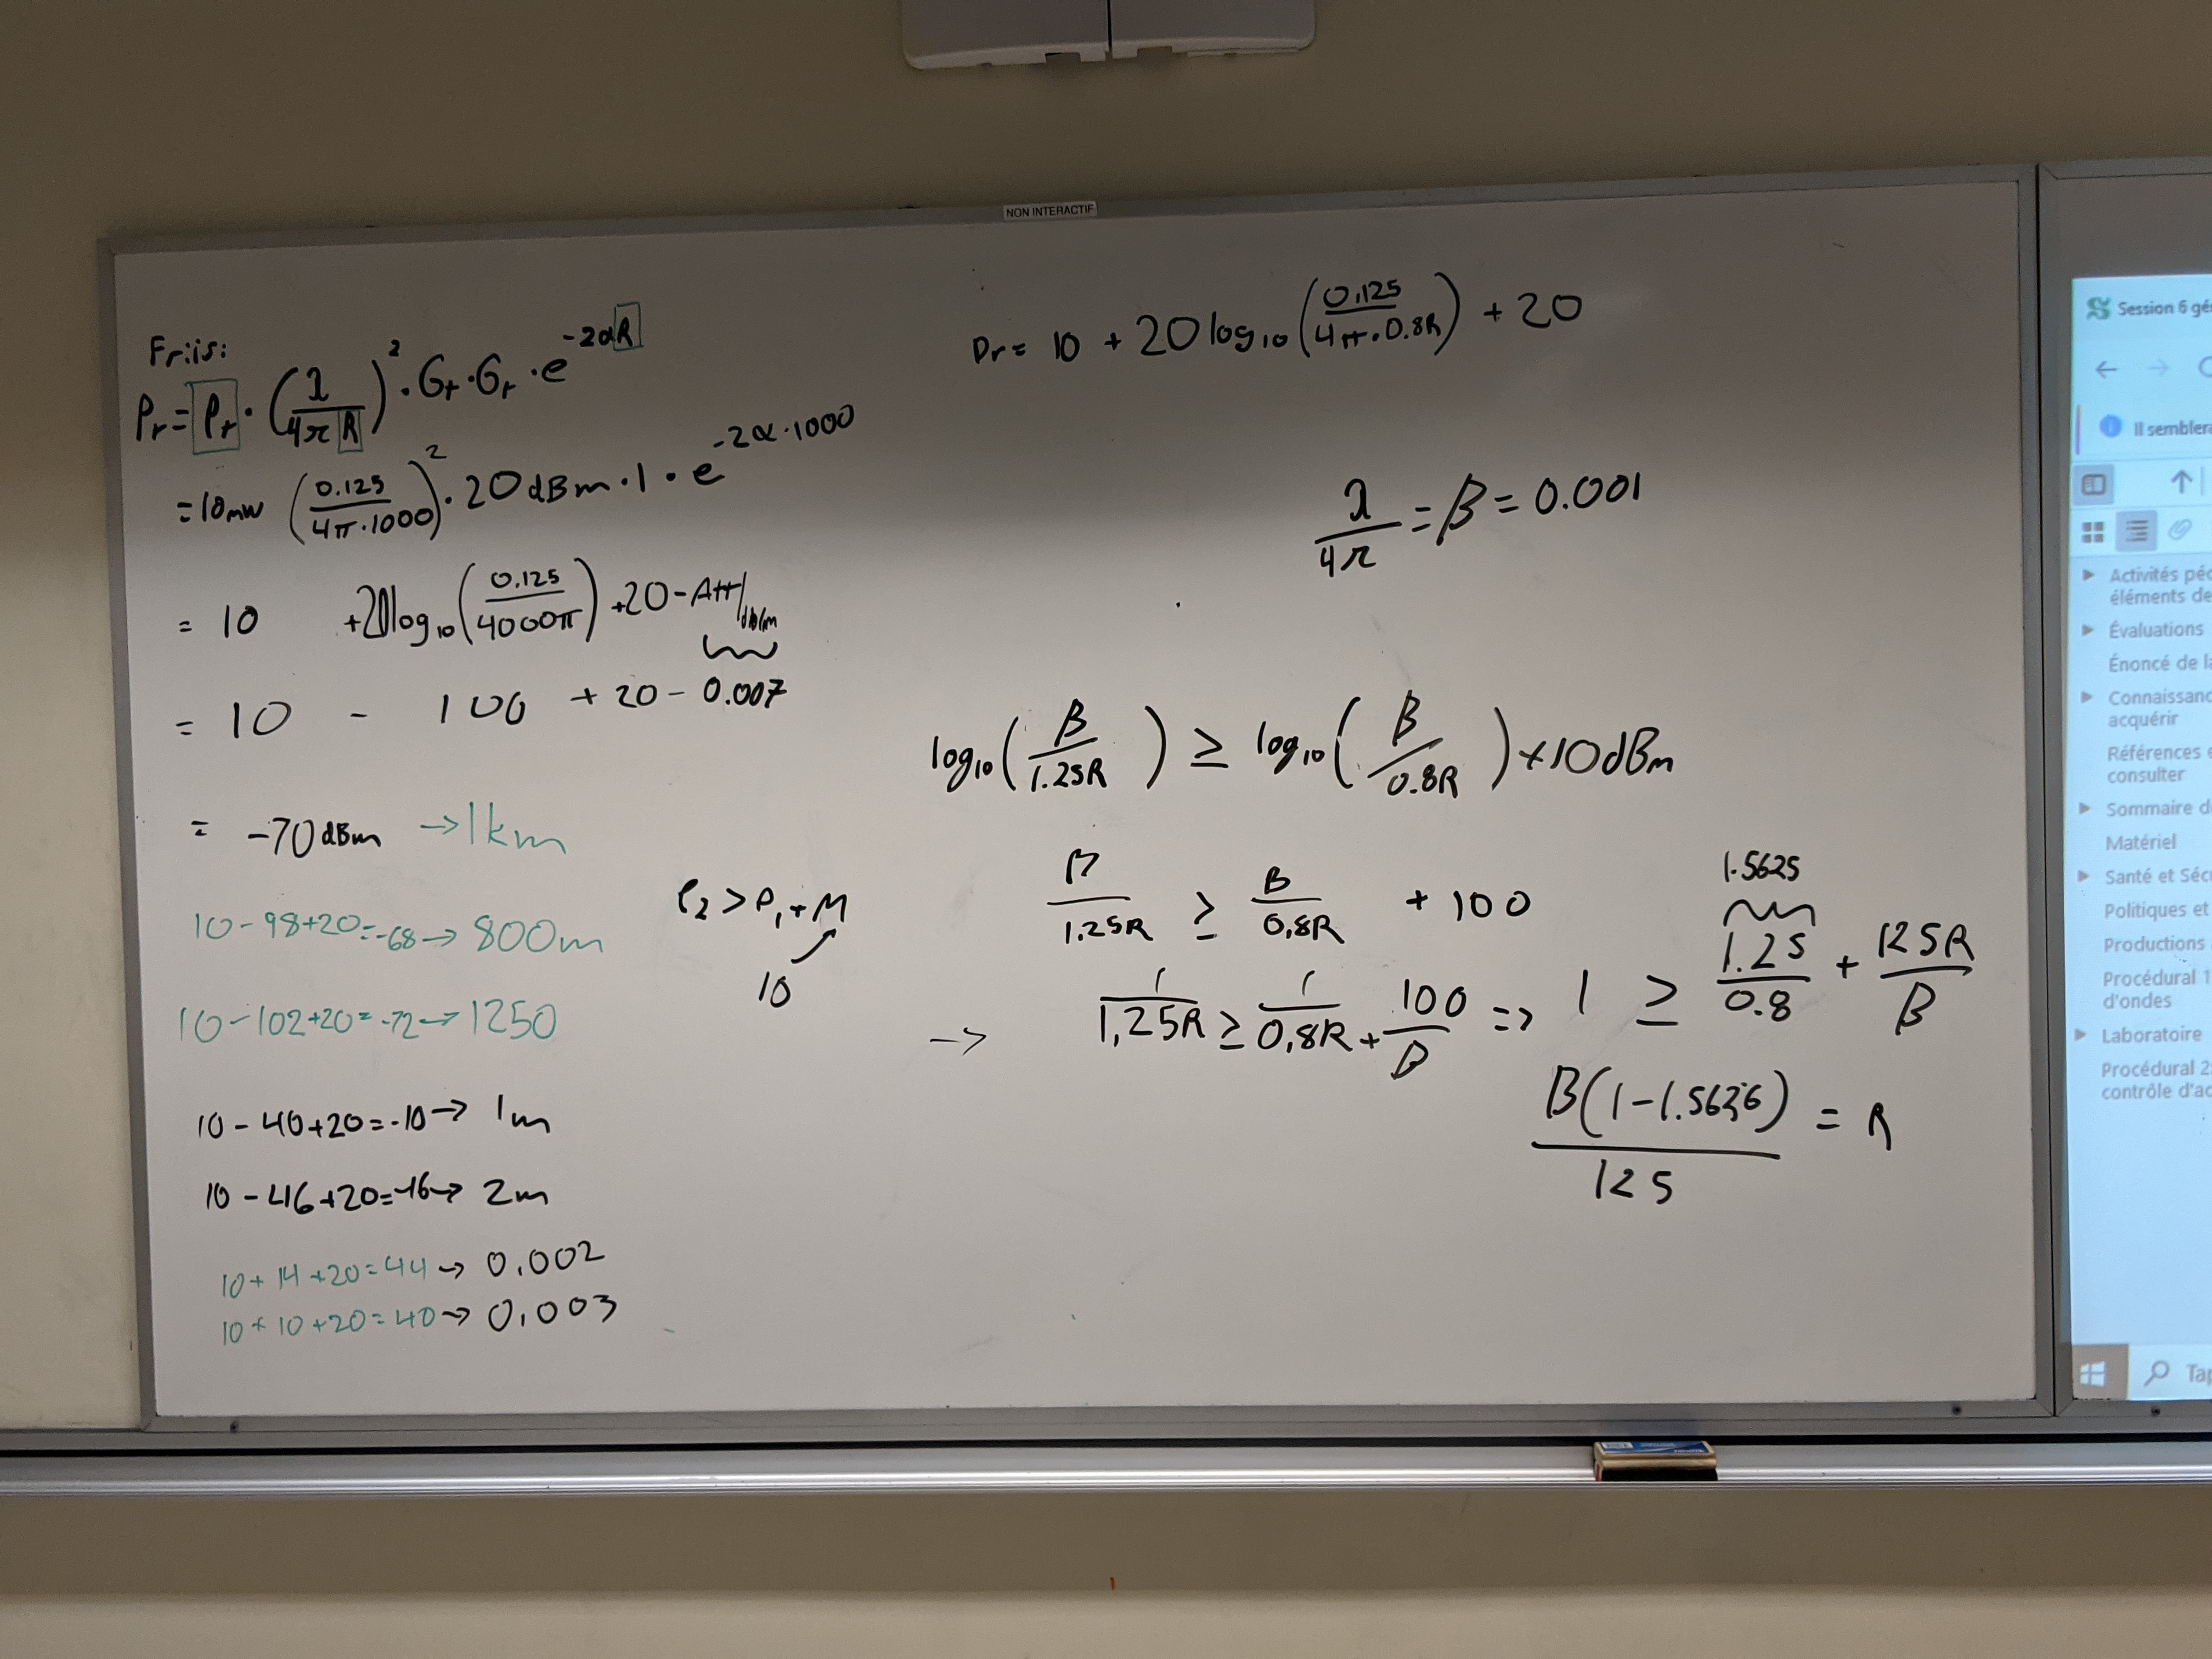 NON INTERACTIF
Friis:
Pr = Pt · (λ / 4πR)² · Gt · Gr · e^-2αR
= 10mW (0.125 / 4π·1000)² · 20dBm · 1 · e^-2α·1000
= 10 +20log₁₀(0,125 / 4000π) +20 - Att/dB/m
= 10 - 100 + 20 - 0.007
= -70 dBm → 1km
10 - 98 + 20 = -68 → 800m
10 - 102 + 20 = -72 → 1250
10 - 40 + 20 = -10 → 1m
10 - 46 + 20 = -16 → 2m
10 + 14 + 20 = 44 → 0,002
10 + 10 + 20 = 40 → 0,003
P₂ > P₁ + M
10
Pr = 10 + 20 log₁₀(0,125 / 4π·0.8R) + 20
λ / 4π = β = 0.001
log₁₀(β / 1.25R) ≥ log₁₀(β / 0.8R) + 10dBm
β / 1.25R ≥ β / 0,8R + 100
→ 1 / 1,25R ≥ 1 / 0,8R + 100 / β => 1 ≥ 1.25 / 0.8 + 125R / β
1.5625
β(1 - 1.5626) / 125 = R
Session 6 gé
Il semblera
Activités péd
éléments de
Évaluations
Énoncé de la
Connaissanc
acquérir
Références
consulter
Sommaire d
Matériel
Santé et Sécu
Politiques et
Productions
Procédural 1
d'ondes
Laboratoire
Procédural 2:
contrôle d'ac
Tap